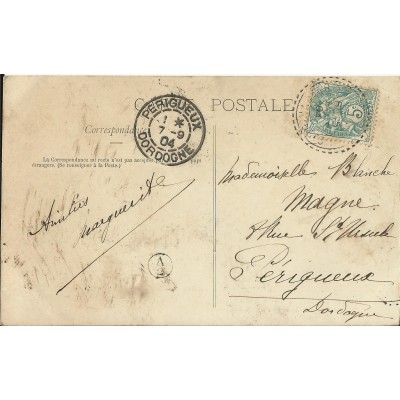 POSTALE
Correspondance
La Correspondance au recto n'est pas acceptée
étrangers. (Se renseigner à la Poste.)
PÉRIGUEUX
7-9
04
DORDOGNE
5
Amitiés
Marguerite
A
Mademoiselle Blanche
Magne
Rue
Périgueux
Dordogne